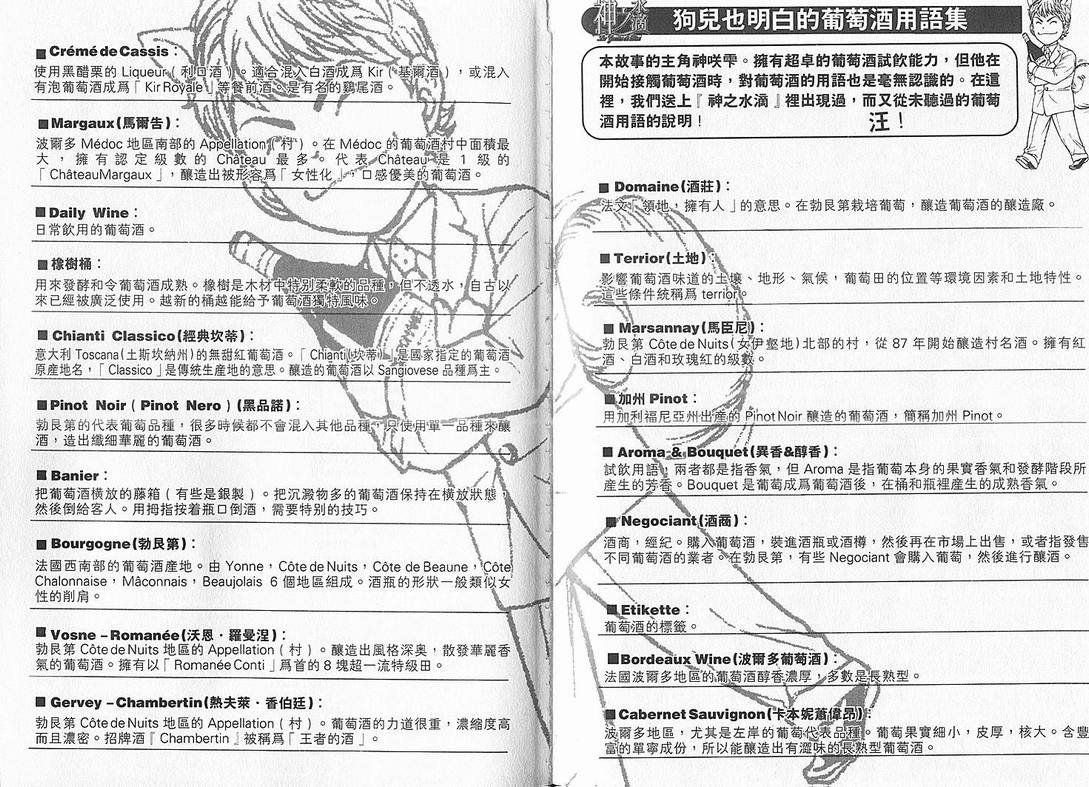 神之水滴
狗兒也明白的葡萄酒用語集
本故事的主角神咲雫。擁有超卓的葡萄酒試飲能力，但他在
開始接觸葡萄酒時，對葡萄酒的用語也是毫無認識的。在這
裡，我們送上『神之水滴』裡出現過，而又從未聽過的葡萄
酒用語的說明！
汪！
■ Domaine(酒莊)：
法文「領地，擁有人」的意思。在勃艮第栽培葡萄，釀造葡萄酒的釀造廠。
■Terrior(土地)：
影響葡萄酒味道的土壤、地形、氣候，葡萄田的位置等環境因素和土地特性。
這些條件統稱爲 terrior。
■ Marsannay(馬臣尼)：
勃艮第 Côte de Nuits(女伊壑地)北部的村，從 87 年開始釀造村名酒。擁有紅
酒、白酒和玫瑰紅的級數。
■加州 Pinot：
用加利福尼亞州出産的 Pinot Noir 釀造的葡萄酒，簡稱加州 Pinot。
■ Aroma & Bouquet(異香&醇香)：
試飲用語，兩者都是指香氣，但 Aroma 是指葡萄本身的果實香氣和發酵階段所
産生的芳香。Bouquet 是葡萄成爲葡萄酒後，在桶和瓶裡産生的成熟香氣。
■Negociant(酒商)：
酒商，經紀。購入葡萄酒，裝進酒瓶或酒樽，然後再在市場上出售，或者指發售
不同葡萄酒的業者。在勃艮第，有些 Negociant 會購入葡萄，然後進行釀酒。
■Etikette：
葡萄酒的標籤。
■Bordeaux Wine(波爾多葡萄酒)：
法國波爾多地區的葡萄酒醇香濃厚，多數是長熟型。
■Cabernet Sauvignon(卡本妮蕭偉昂)：
波爾多地區，尤其是左岸的葡萄代表品種。葡萄果實細小，皮厚，核大。含豐
富的單寧成份，所以能釀造出有澀味的長熟型葡萄酒。
■Crémé de Cassis：
使用黑醋栗的 Liqueur（利口酒）。適合混入白酒成爲 Kir（基爾酒），或混入
有泡葡萄酒成爲「Kir Royale」等餐前酒。是有名的鷄尾酒。
■Margaux(馬爾告)：
波爾多 Médoc 地區南部的 Appellation（村）。在 Médoc 的葡萄酒村中面積最
大，擁有認定級數的 Château 最多。代表 Château 是 1 級的
「ChâteauMargaux」，釀造出被形容爲「女性化」，口感優美的葡萄酒。
■Daily Wine：
日常飲用的葡萄酒。
■橡樹桶：
用來發酵和令葡萄酒成熟。橡樹是木材中特別柔軟的品種，但不透水，自古以
來已經被廣泛使用。越新的桶越能給予葡萄酒獨特風味。
■ Chianti Classico(經典坎蒂)：
意大利 Toscana(土斯坎納州)的無甜紅葡萄酒。「Chianti(坎蒂)」是國家指定的葡萄酒
原産地名，「Classico」是傳統生産地的意思。釀造的葡萄酒以 Sangiovese 品種爲主。
■Pinot Noir（Pinot Nero）(黑品諾)：
勃艮第的代表葡萄品種，很多時候都不會混入其他品種，只使用單一品種來釀
酒，造出纖細華麗的葡萄酒。
■Banier：
把葡萄酒橫放的藤箱（有些是銀製）。把沉澱物多的葡萄酒保持在橫放狀態，
然後倒給客人。用拇指按着瓶口倒酒，需要特別的技巧。
■Bourgogne(勃艮第)：
法國西南部的葡萄酒産地。由 Yonne，Côte de Nuits，Côte de Beaune，Côte
Chalonnaise，Mâconnais，Beaujolais 6 個地區組成。酒瓶的形狀一般類似女
性的削肩。
■ Vosne－Romanée(沃恩・羅曼涅)：
勃艮第 Côte de Nuits 地區的 Appellation（村）。釀造出風格深奥，散發華麗香
氣的葡萄酒。擁有以「Romanée Conti」爲首的 8 塊超一流特級田。
■ Gervey－Chambertin(熱夫萊・香伯廷)：
勃艮第 Côte de Nuits 地區的 Appellation（村）。葡萄酒的力道很重，濃縮度高
而且濃密。招牌酒『Chambertin』被稱爲「王者的酒」。